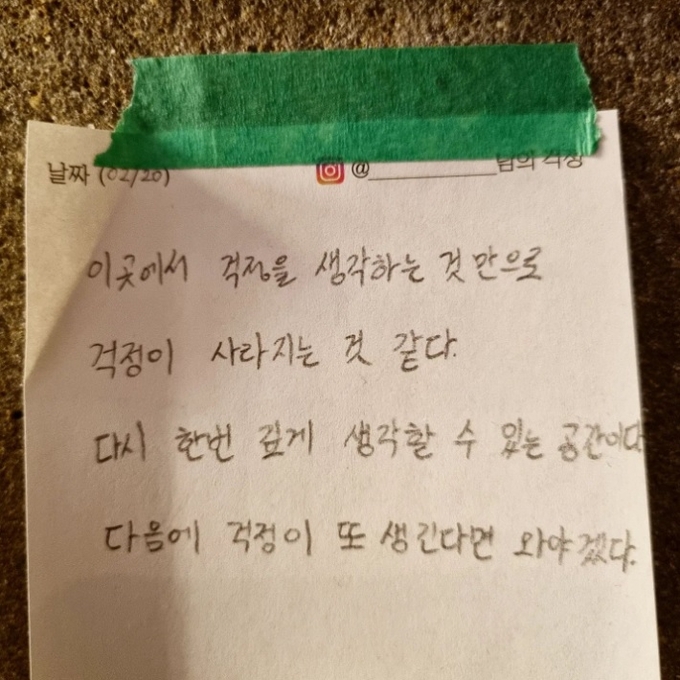 날짜 (02/20) @____________님의 걱정
이곳에서 걱정을 생각하는 것만으로
걱정이 사라지는 것 같다.
다시 한번 깊게 생각할 수 있는 공간이다
다음에 걱정이 또 생긴다면 와야겠다.